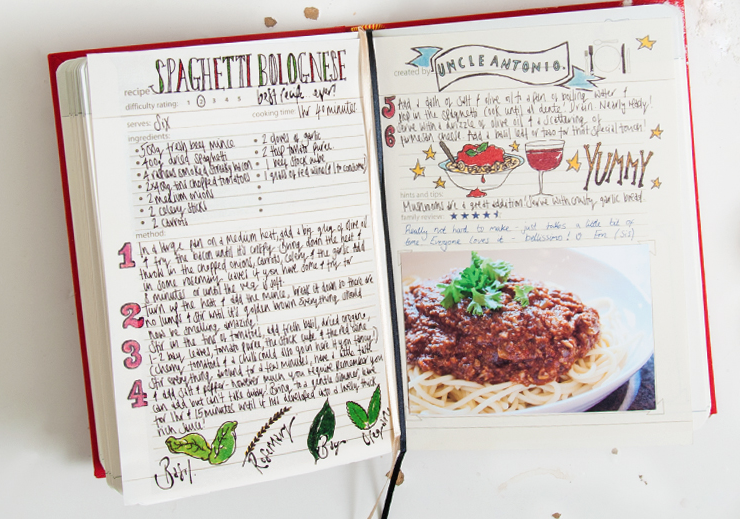 recipe SPAGHETTI BOLOGNESE
difficulty rating: 1 2 3 4 5 best recipe ever!
cooking time 1hr 40 minutes
serves: Six
ingredients:
• 500g fresh beef mince
• 400g dried spaghetti
• 4 rashers smoked streaky bacon
• 2x400g tins chopped tomatoes
• 2 medium onions
• 2 celery sticks
• 2 carrots
• 2 cloves of garlic
• 2 tbsp tomato puree
• 1 beef stock cube
• 1 glass of red wine (& 1 to consume)
method:
1 In a large pan on a medium heat, add a big glug of olive oil
& fry the bacon until it's crispy. Bring down the heat &
throw in the chopped onions, carrots, celery & the garlic. Add
in some rosemary leaves if you have some & fry for
minutes or until the veg is soft.
2 turn up the heat & add the mince, break it down so there are
no lumps & stir until it's golden brown. Everything should
now be smelling amazing.
3 in the tins of tomatoes, add fresh basil, dried oregano,
1-2 bay leaves, tomato puree, the stock cube & the red wine.
(cherry tomatoes & a chilli could also go in here if you fancy)
Stir everything around for a few minutes, have a little taste
4 & add salt & pepper - however much you require. Remember you
can add but can't take away! Bring to a gentle simmer, leave
for 1hr & 15 minutes until it has developed into a lovely, thick
rich sauce.
Basil. Rosemary Bay Oregano
created by UNCLE ANTONIO.
5 Add a pinch of salt & olive oil to a pan of boiling water &
pop in the spaghetti. Cook until al dente! Drain. Nearly ready!
6 Serve with a drizzle of olive oil & a scattering of
parmesan cheese. Add a basil leaf or two for that special touch!
YUMMY
hints and tips:
Mushrooms are a great addition! Serve with crusty garlic bread.
family review:
Really not hard to make - just takes a little bit of
time. Everyone loves it - bellissimo!